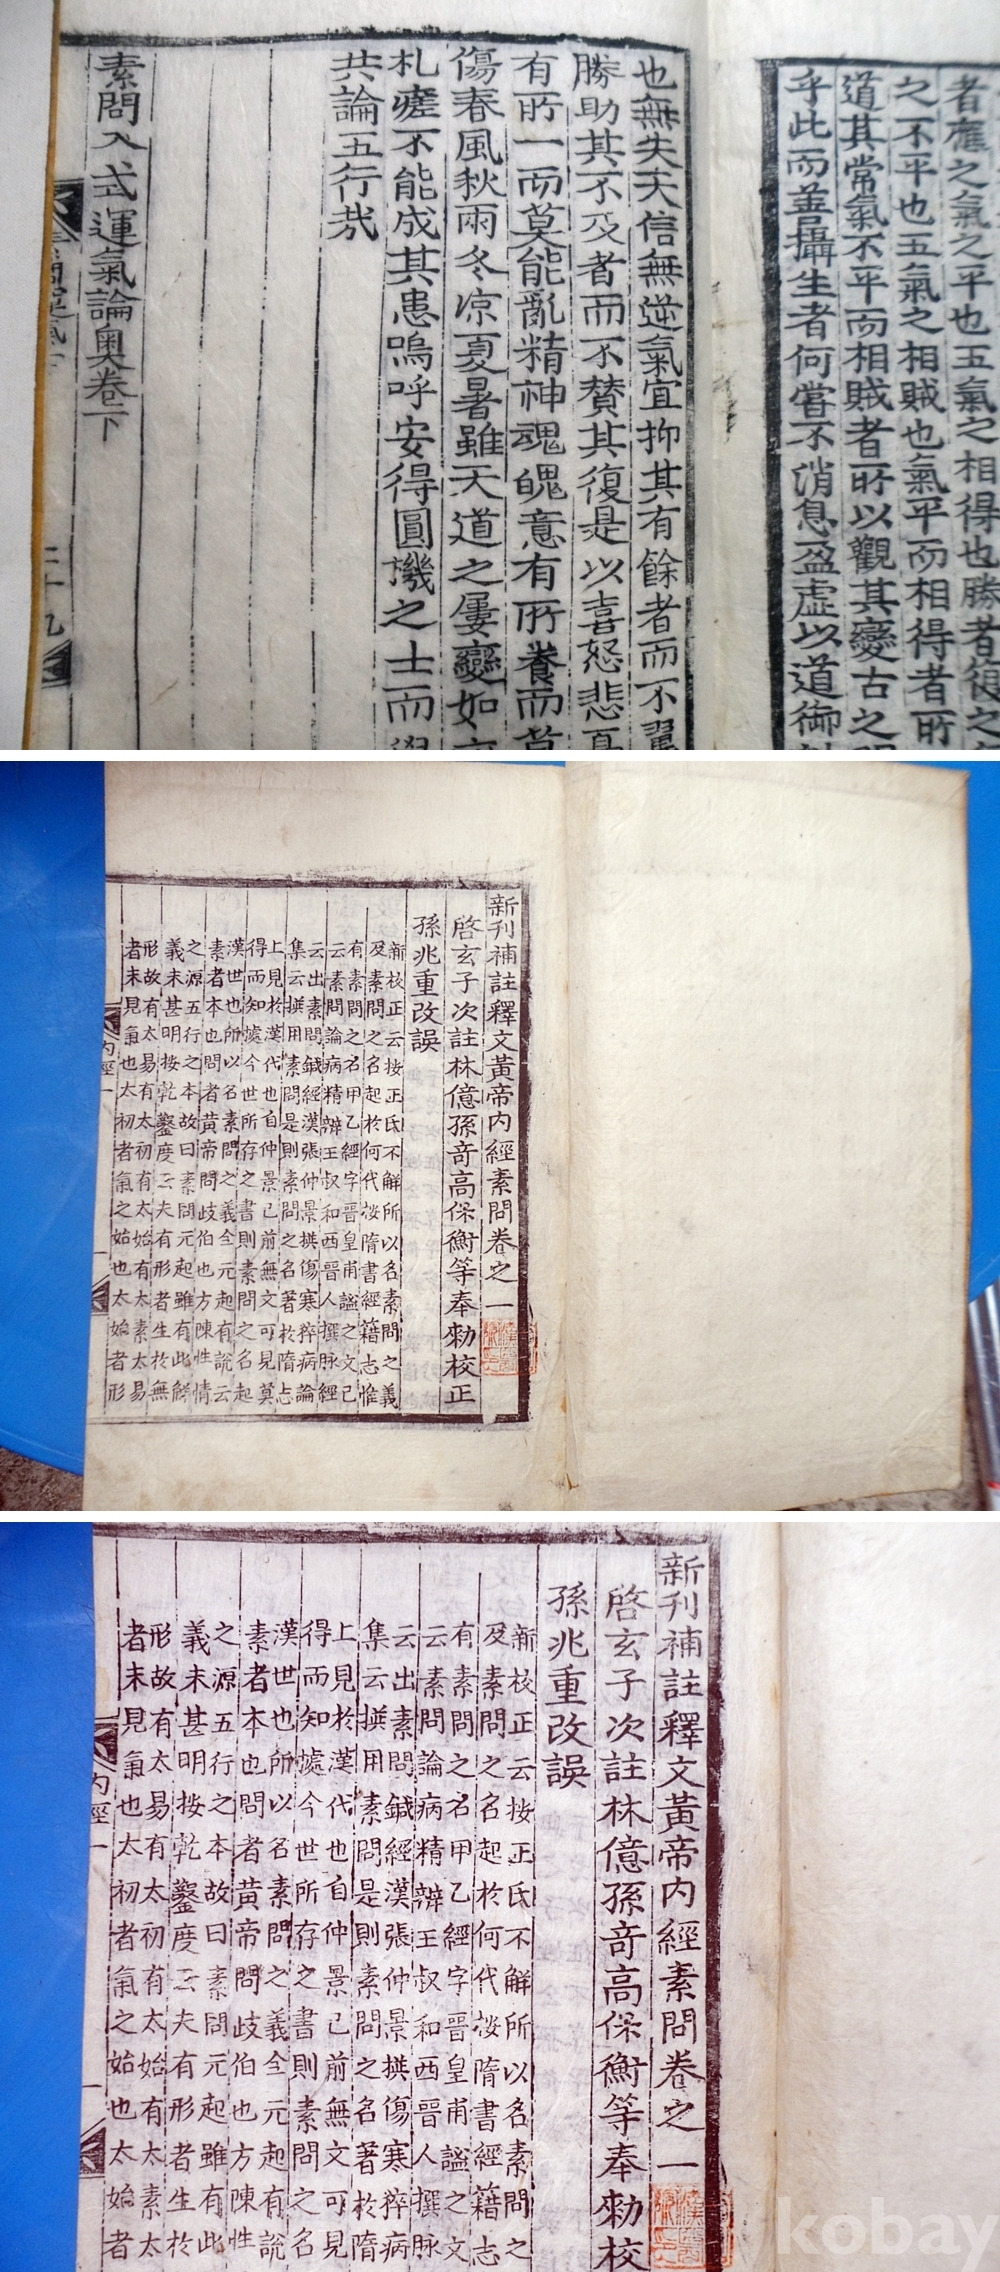 者應之氣之平也五氣之相得也勝者復之
之不平也五氣之相賊也氣平而相得者所
道其常氣不平而相賊者所以觀其變古之
乎此而善攝生者何嘗不消息盈虛以道御
也無失天信無逆氣宜抑其有餘者而不翼
勝助其不及者而不贊其復是以喜怒悲
有所一而莫能亂精神魂魄意有所養而莫
傷春風秋雨冬凉夏暑雖天道之屢變如
札瘥不能成其患嗚呼安得圓機之士而
共論五行哉
素問入式運氣論奧卷下
二十九
新刊補註釋文黃帝內經素問卷之一
啓玄子次註林億孫奇高保衡等奉勑校正
孫兆重改誤
新校正云按王氏不解所以名素問之義
及素問之名起於何代按隋書經籍志惟
有素問之名甲乙經字晉皇甫謐之文已
云素問論病精辨王叔和西晉人撰脉經
云出素問鍼經漢張仲景撰傷寒猝病論
集云撰用素問是則素問之名著於隋志
上見於漢代也自仲景已前無文可見莫
得而知㨿今世所存之書則素問之名起
漢世也所以名素問之義全元起有說云
素者本也問者黃帝問歧伯也方陳性情
之源五行之本故曰素問元起雖有此解
義未甚明按乾鑿度云夫有形者生於無
形故有太易有太初有太始有太素太易
者未見氣也太初者氣之始也太始者形
內經一
新刊補註釋文黃帝內經素問卷之一
啓玄子次註林億孫奇高保衡等奉勑校
孫兆重改誤
新校正云按王氏不解所以名素問之
及素問之名起於何代按隋書經籍志
有素問之名甲乙經字晉皇甫謐之文
云素問論病精辨王叔和西晉人撰脉
云出素問鍼經漢張仲景撰傷寒猝病
集云撰用素問是則素問之名著於隋
上見於漢代也自仲景已前無文可見
得而知㨿今世所存之書則素問之名
漢世也所以名素問之義全元起有說
素者本也問者黃帝問歧伯也方陳性
之源五行之本故曰素問元起雖有此
義未甚明按乾鑿度云夫有形者生於
形故有太易有太初有太始有太素太
者未見氣也太初者氣之始也太始者
內經一
kobay